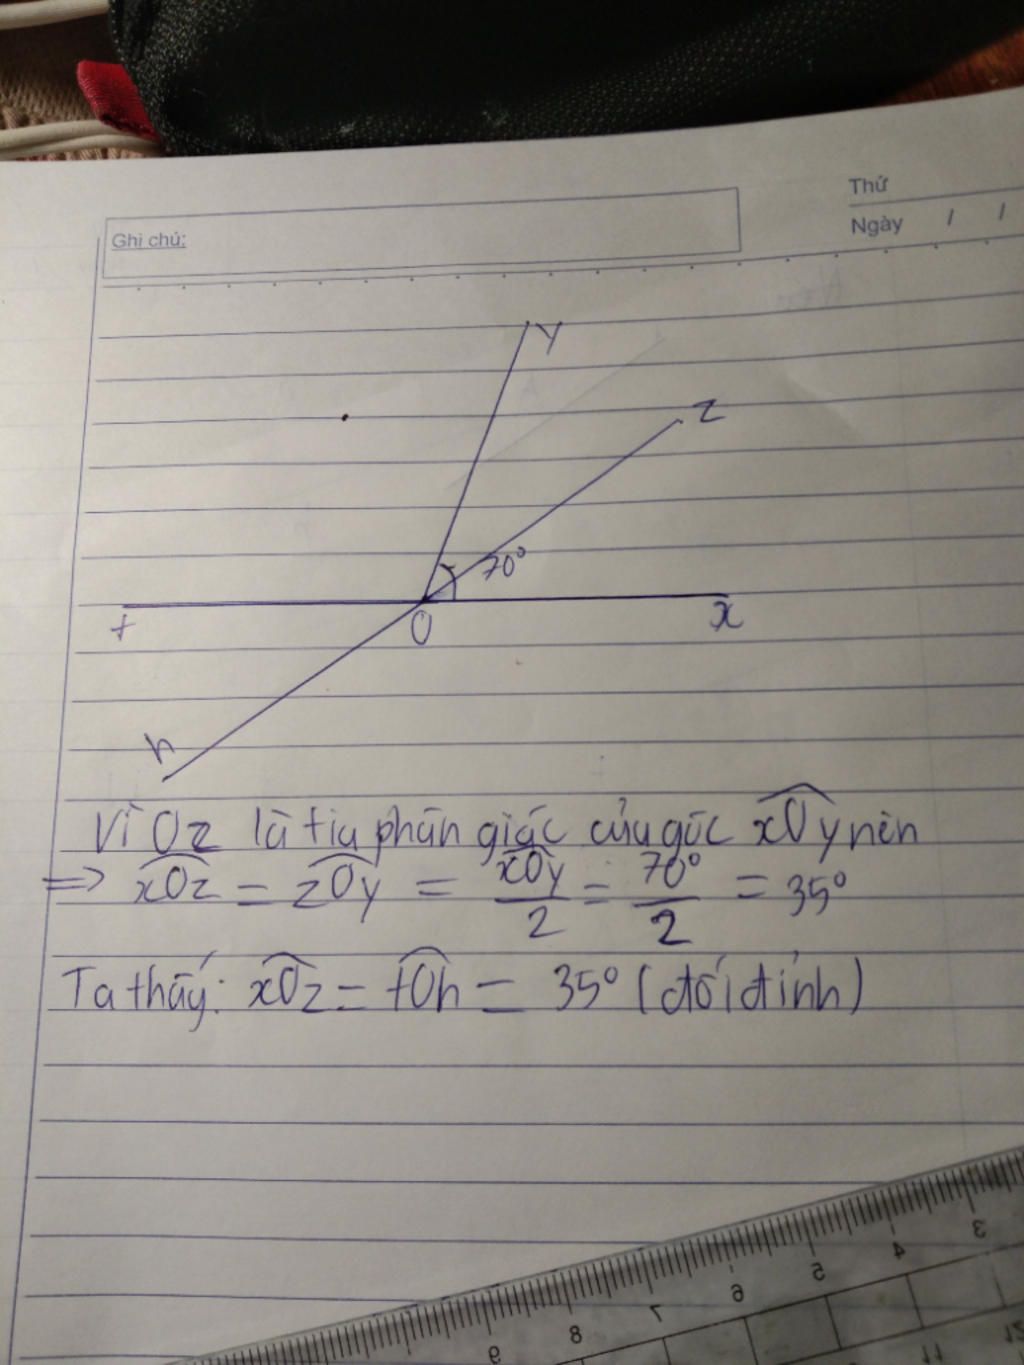 Thứ
Ghi chú:
Ngày / /
y
z
70°
t
O
x
h
Vì Oz là tia phân giác của góc xOy nên
=> xOz = zOy = xOy/2 = 70°/2 = 35°
Ta thấy: xOz = tOh = 35° (đối đỉnh)
3
4
5
6
7
8
9
12
11